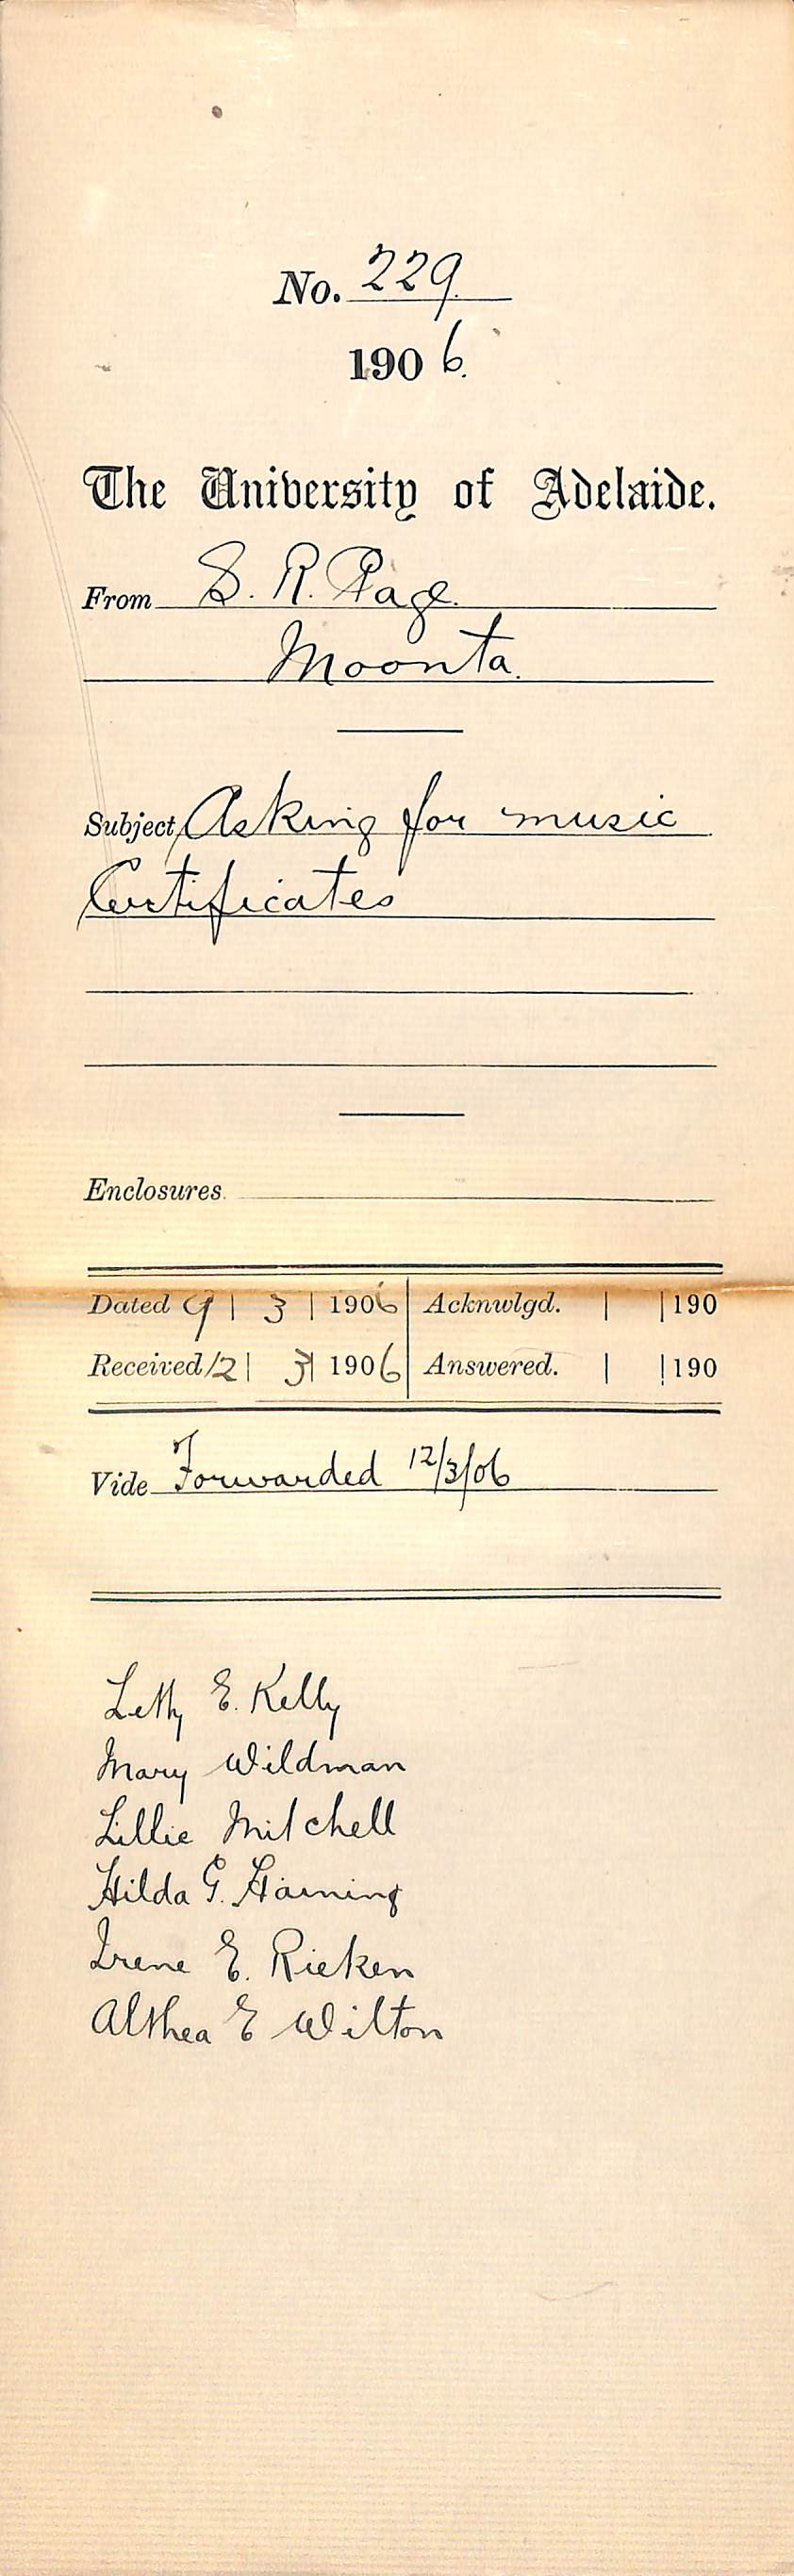 No. 229.
1906.
The University of Adelaide.
From S. R. Page.
Moonta.
Subject Asking for music
Certificates
Enclosures.
Dated 9 | 3 | 1906 Acknwlgd. | | 190
Received 12 | 3 | 1906 Answered. | | 190
Vide Forwarded 12/3/06
Letty E. Kelly
Mary Wildman
Lillie Mitchell
Hilda G.
Irene E. Rieken
Althea E Wilton